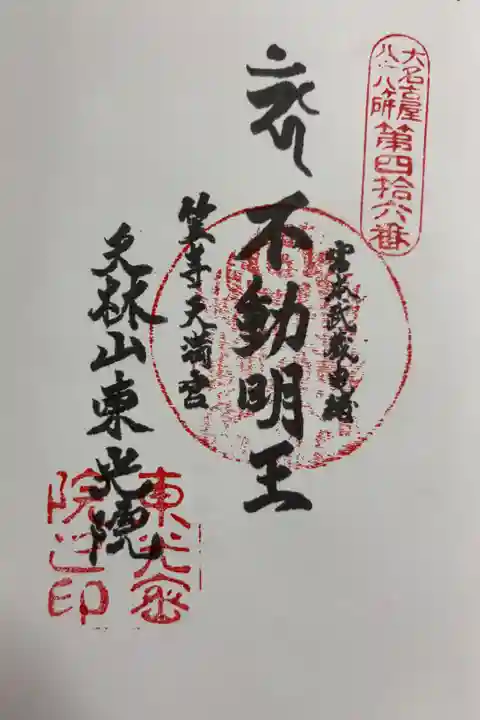 大名古屋
八十八ヶ所
第四拾六番
宮本武蔵
不動明王
笠寺天満宮
天林山東光院
東光密
院之印